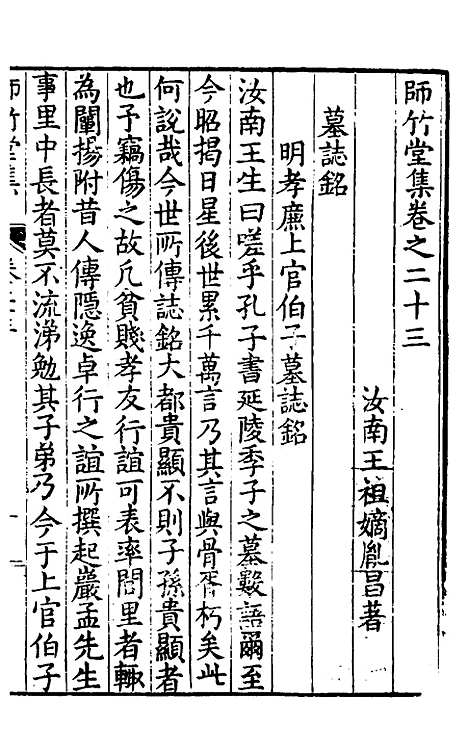 師竹堂集卷之二十三
汝南王祖嫡胤昌著
墓誌銘
明孝廉上官伯子墓誌銘
汝南王生曰嗟乎孔子書延陵季子之墓數語爾至
今昭揭日星後世累千萬言乃其言與骨胥朽矣此
何說哉今世所傳誌銘大都貴顯不則子孫貴顯者
也予竊傷之故凢貧賤孝友行誼可表率閭里者輙
為闡揚附昔人傳隱逸卓行之誼所撰起巖孟先生
事里中長者莫不流涕勉其子弟乃今于上官伯子
師竹堂集 卷二十三 一